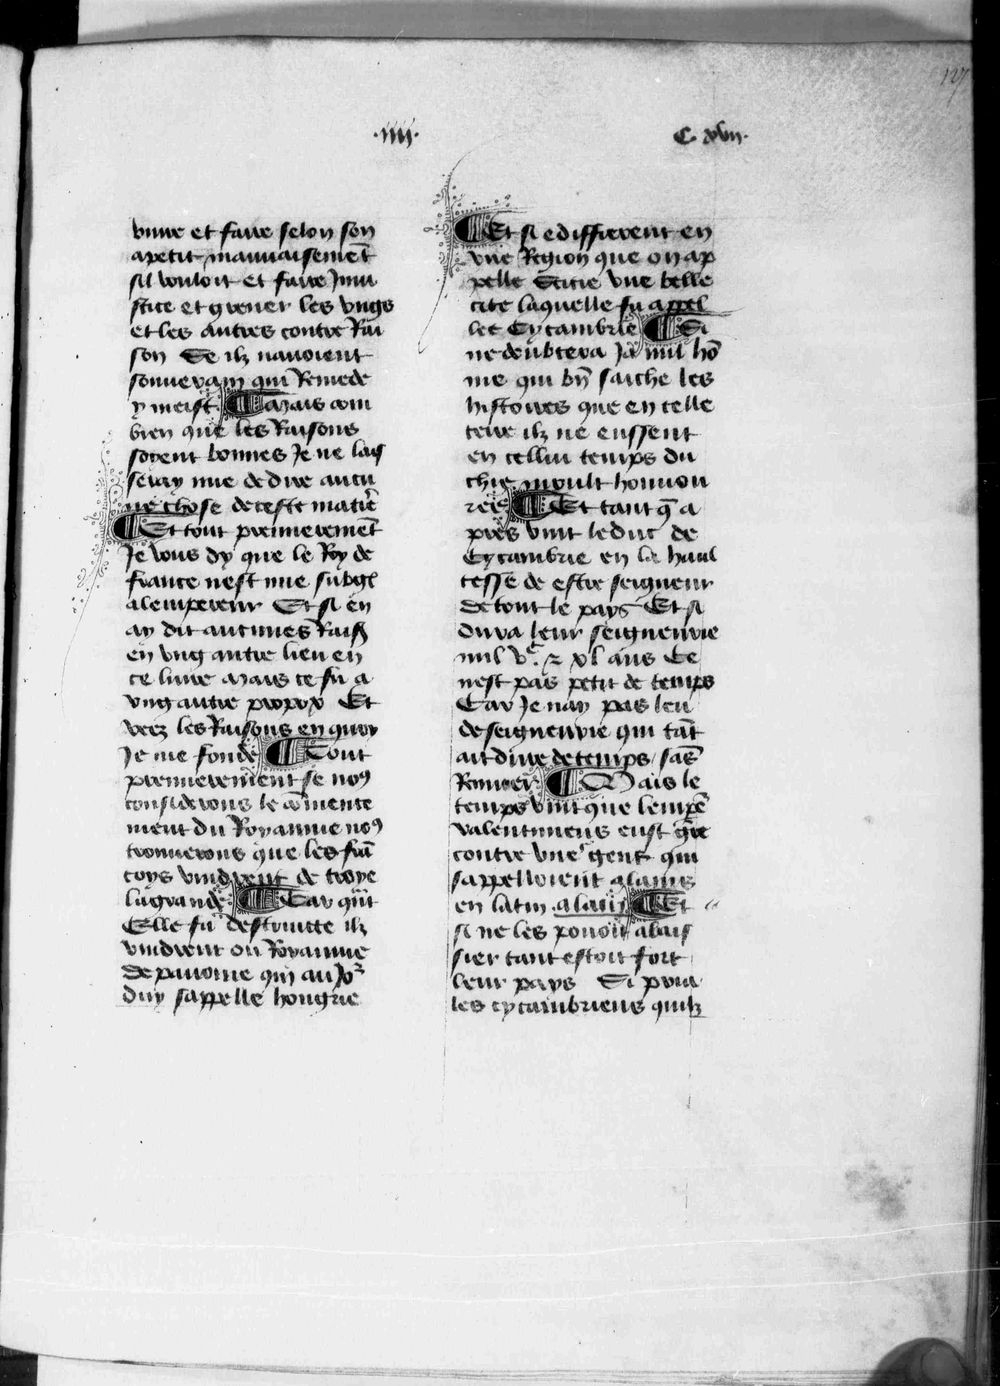 .iiii.
C. xvii.
127
vivre et faire selon son
apetit mauvaisement
sil vouloit et faire Jniu
stice et grever les ungs
et les autres contre Rai
son Se ilz navoient
souverain qui Remede
y meist ¶ Mais com
bien que les Raisons
soyent bonnes Je ne lais
seray mie de dire aucu
ne chose de ceste matie᷑
¶ Et tout premieremēt
Je vous dy que le Roy de
france nest mie subget
a lempereur Et si en
ay dit aucunes Raisōs
en ung autre lieu en
ce livre Mais ce fu a
ung autre propox Et
veez les Raisons en quoy
Je me fonde ¶ Tout
premierement se noꝰ
considerons le cōmence
ment du Royaume noꝰ
trouverons que les frā
coys vindrent de troye
la grande ¶ Car qūt
Elle fu destruitte ilz
vindrent ou Royaume
de panonie qui au Jo᷑
duy sappelle hongrie
¶ Et si edifierent en
une Region que on ap
pelle Sticie une belle
cite laquelle fu appel
lee Cycambrie ¶ Si
ne doubtera Ja nul hō
me qui bn̄ saiche les
histoires que en celle
terre ilz ne eussent
en cellui temps du
chie moult honnou
ree ¶ Et tant q̄ a
pres vint le duc de
Cycambrie en la haul
tesse de estre seigneur
de tout le pays Et si
dura leur seigneurie
mil vᶜ. ⁊ xl ans Ce
nest pas petit de temps
Car Je nay pas leu
de seigneurie qui tāt
ait dure de temps sās
Rnuer ¶ Mais le
temps vint que lempe᷑
valentiniens eust gr̄e
contre une gent qui
sappelloient alains
en latin alani ¶ Et
si ne les povoit abais
sier tant estoit fort
leur pays Si pria
les cycambriens quilz